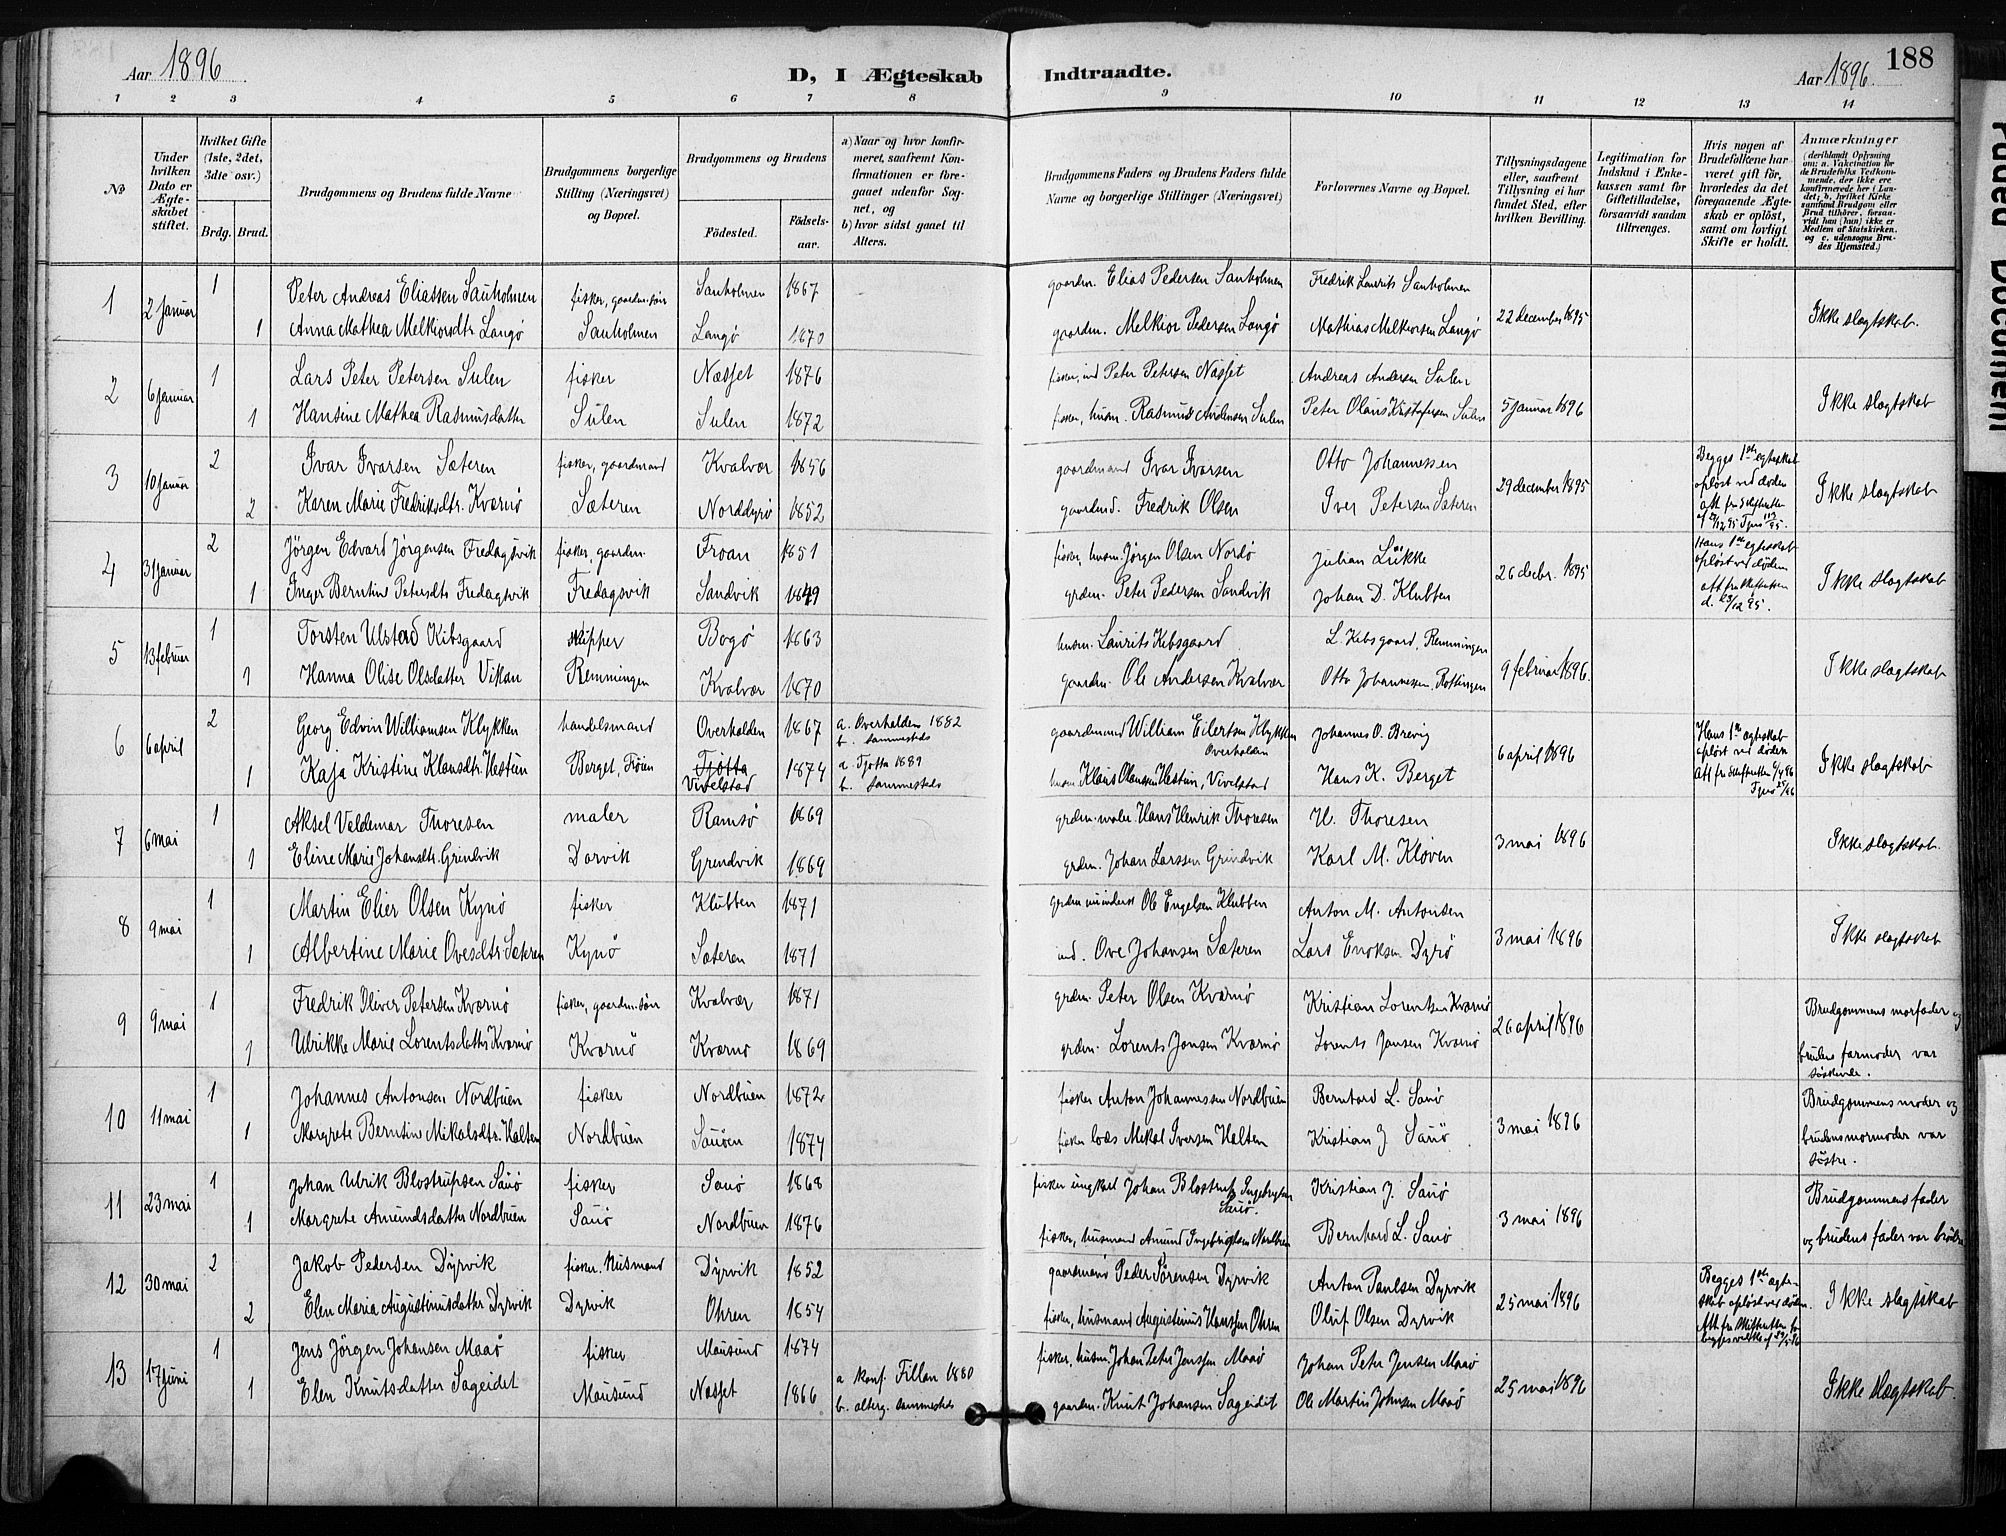 Aar 1896
D, I Ægteskab Indtraadte.
Aar 1896
188
1 2 3 4 5 6 7 8 9 10 11 12 13 14
No
Under hvilken Dato er Ægteskabet stiftet.
Hvilket Gifte (1ste, 2det, 3die osv.)
Brdg. Brud.
Brudgommens og Brudens fulde Navne
Brudgommens borgerlige Stilling (Næringsvei) og Bopæl.
Brudgommens og Brudens
Födested. Födselsaar.
a) Naar og hvor konfirmeret, saafremt Konfirmationen er foregaaet udenfor Sognet, og
b) hvor sidst gaaet til Alters.
Brudgommens Faders og Brudens Faders fulde Navne og borgerlige Stillinger (Næringsvei)
Forlovernes Navne og Bopæl.
Tillysningsdagene eller, saafremt Tillysning ei har fundet Sted, efter hvilken Bevilling.
Legitimation for Indskud i Enkekassen samt for Giftetilladelse, forsaavidt saadan tiltrænges.
Hvis nogen af Brudefolkene har været gift før, hvorledes da det foregaaende Ægteskab er opløst, samt om lovligt Skifte er holdt.
Anmærkninger
(deriblandt Oplysning om: a. Vakcination for de Brudefolks Vedkommende, der ikke ere konfirmerede her i Landet; b, hvilket Kirkesamfund Brudgom eller Brud tilhörer, forsaavidt han (hun) ikke er Medlem af Statskirken, og c. udensogns Brudes Hjemsted.)
1 2 januar 1 Peter Andreas Eliassen Sauholmen fisker, gaardm.sön Sauholmen 1867 gaardm. Elias Pedersen Sauholmen Fredrik Laurits Sauholmen 22 december 1895 Ikke slægtskab.
1 Anna Mathea Melkiorsdtr. Langø Sauholmen Langø 1870 gaardm. Melkior Pedersen Langø Mathias Melkiorsen Langø
2 6 januar 1 Lars Peter Petersen Sulen fisker Næsset 1876 fisker, ind Peter Petersen Næsset Andreas Andersen Sulen 5 januar 1896 Ikke slægtskab
1 Hansine Mathea Rasmusdatter Sulen Sulen 1872 fisker, husm. Rasmus Andersen Sulen Peter Olaus Kristofersen Sulen
3 10 januar 2 Ivar Ivarsen Sæteren fisker, gaardmand Kvalvær 1856 gaardmand Ivar Ivarsen Otto Johannessen 29 december 1895 Begges 1ste egteskab opløst ved døden Att. fra skifteretten Ikke slægtskab
2 Karen Marie Fredriksdtr. Kværnø Sæteren Norddyrø 1852 gaardmd. Fredrik Olsen Iver Petersen Sæteren
4 31 januar 2 Jörgen Edvard Jörgensen Fredagsvik fisker, gaardm. Froan 1851 fisker, husm. Jörgen Olsen Nordø Julian Lükke 26 decbr. 1895 Hans 1ste egteskab opløst ved døden att fra skifteretten d. 23/12 95. Ikke slægtskab
1 Inger Berntine Petersdtr Fredagsvik Fredagsvik Sandvik 1849 grdm. Peter Pedersen Sandvik Johan D. Klubben
5 13 februar 1 Torsten Ulstad Kibsgaard skipper Bogö 1863 husm. Laurits Kibsgaard L. Kibsgaard, Remmingen 9 februar 1896. Ikke slægtskab
1 Hanna Olise Olsdatter Vikan Remmingen Kvalvær 1870 gaardm. Ole Andersen Kvalvær Otto Johannessen, Rottingen
6 6 april 2 Georg Edvin Williamsen Klykken handelsmand Overhalden 1867 a. Overhalden 1882 b. sammesteds gaardmand William Eilertsen Klykken Overhalden Johannes O. Brevig 6 april 1896 Hans 1ste ægteskab opløst ved døden Att fra skifteretten Ikke slægtskab
1 Kaja Kristine Klausdtr. Hestun Berget, Fröien Tjötta Vivelstad 1874 a. Tjotta 1889 b. sammesteds husm Klaus Olaussen Hestun, Vivelstad Hans K. Berget
7 6 mai 1 Aksel Valdemar Thoresen maler Ramsö 1869 grdm. maler Hans Henrik Thoresen H. Thoresen 3 mai 1896 Ikke slægtskab.
1 Eline Marie Johansdtr. Grindvik Darvik Grendvik 1869 grdm. Johan Larssen Grindvik Karl M. Kløven
8 9 mai 1 Martin Elier Olsen Kynö fisker Klubben 1871 Ole Engelsen Klubben Anton M. Antonsen 3 mai 1896 Ikke slægtskab
1 Albertine Marie Ovesdtr. Sæteren Kynö Sæteren 1871 ind. Ove Johansen Sæteren Lars Enoksen Dyrö
9 9 mai 1 Fredrik Oliver Petersen Kværnö fisker, gaardm.sön Kvalvær 1871 grdm. Peter Olsen Kværnö Kristian Lorentsen Kværnö 26 april 1896 Brudgommens morfader og
1 Ulrikke Marie Lorentsdatter Kværnö Kværnö Kværnö 1869 grdm. Lorents Jensen Kværnö Lorents Jensen Kværnö brudens farmoder var søskende.
10 11 mai 1 Johannes Antonsen Nordbuen fisker Nordbuen 1872 fisker Anton Johannessen Nordbuen Bernhard L. Sauö 3 mai 1896 Brudgommens moder og
1 Margrete Berntine Mikalsdtr. Halten Nordbuen Sauöen 1874 fisker lods Mikal Iversen Halten Kristian J. Sauö brudens mormoder var söstre.
11 23 mai 1 Johan Ulrik Blostrupsen Sauö fisker Sauö 1868 fisker ungkarl Johan Blostrup Ingebrigtsen Sauö. Kristian J. Sauö 3 mai 1896 Brudgommens fader
1 Margrete Amundsdatter Nordbuen Sauö Nordbuen 1876 fisker, husmand Amund Ingebrigtsen Nordbuen Bernhard L. Sauö og brudens fader var brödre
12 30 mai 2 Jakob Pedersen Dyrvik fisker. husmand Dyrvik 1852 gaardmand Peder Sörensen Dyrvik Anton Paulsen Dyrvik 25 mai 1896 Begges 1ste ægteskab opløst ved døden. Att. fra skifteretten Ikke slægtskab
2 Elen Maria Augustinusdatter Dyrvik Dyrvik Ohren 1854 fisker, husmand Augustinus Hanssen Ohren Oluf Olsen Dyrvik
13 17 juni 1 Jens Jörgen Johansen Maaö fisker Mausund 1874 fisker, husm. Johan Peter Jenssen Maaö Johan Peter Jensen Maaö 25 mai 1896 Ikke slægtskab
1 Elen Knutsdatter Sageidet Mausund Næsset 1866 a konf. Fillan 1880 b. alterg. sammesteds gaardm. Knut Johansen Sageidet Ole Martin Johnsen Maaö